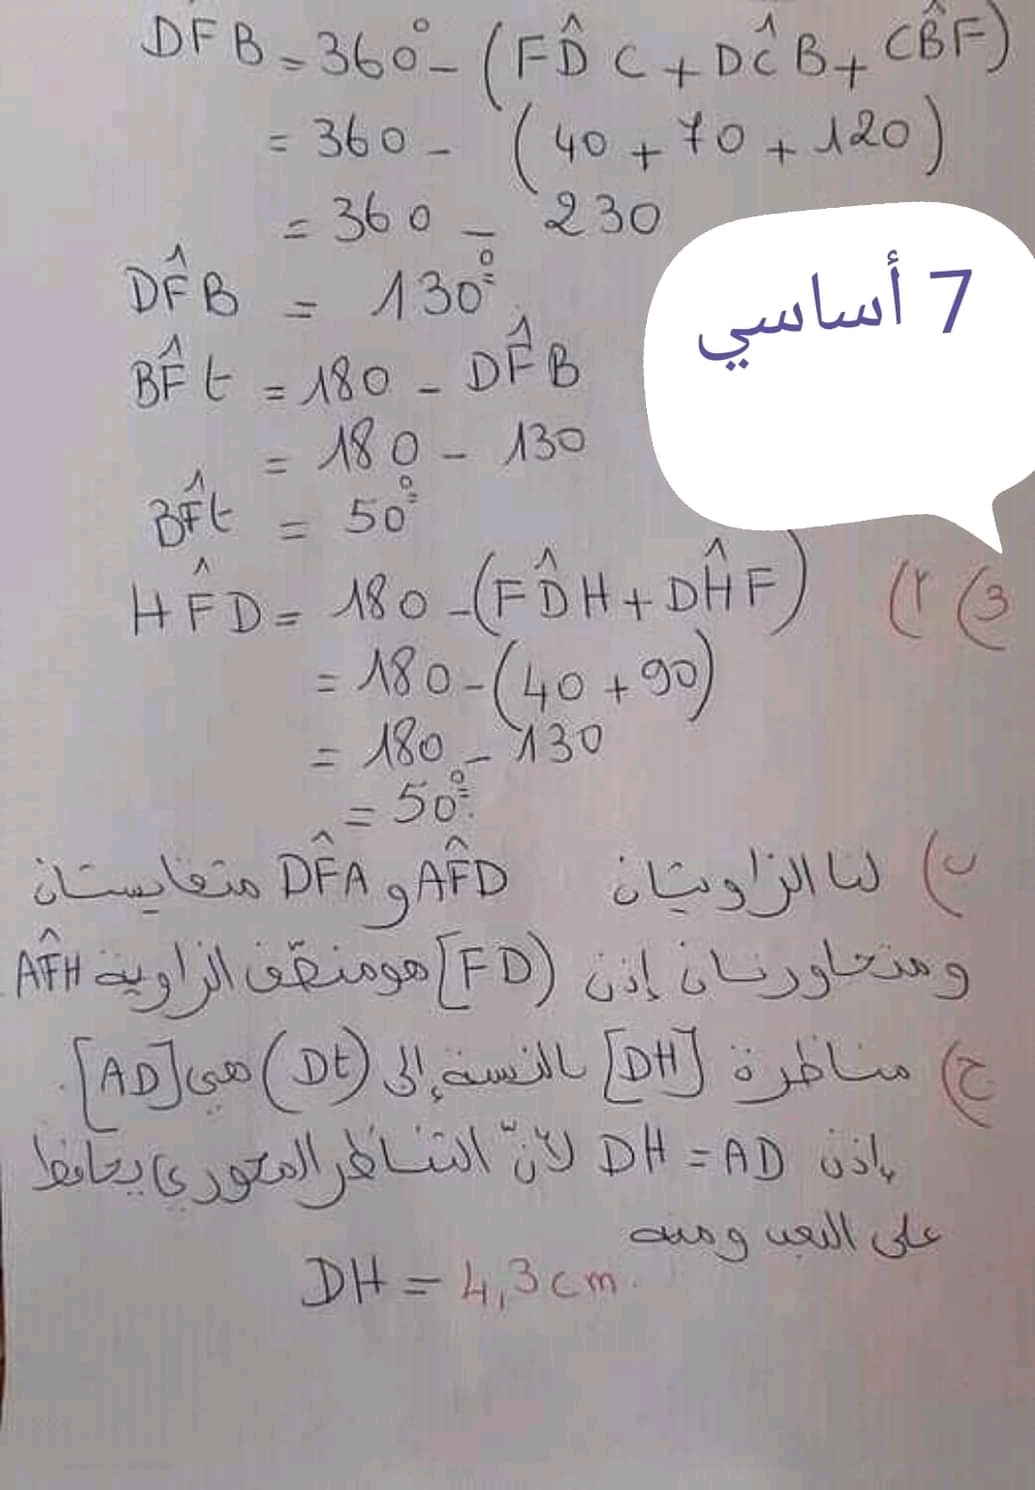 DF̂B = 360° - (FD̂C + DĈB + CB̂F)
= 360 - (40 + 70 + 120)
= 360 - 230
DF̂B = 130°
7 أساسي
BF̂t = 180 - DF̂B
= 180 - 130
BF̂t = 50°
3) أ) HF̂D = 180 - (FD̂H + DĤF)
= 180 - (40 + 90)
= 180 - 130
= 50°
ب) لنا الزاويتان AF̂D و DF̂A متقايستان
ومتجاورتان إذن [FD) هو منصّف الزاوية AF̂H
ج) مناظرة [DH] بالنسبة إلى (Dt) هي [AD].
إذن DH = AD لأنّ التناظر المحوري يحافظ
على البعد ومنه
DH = 4,3 cm.